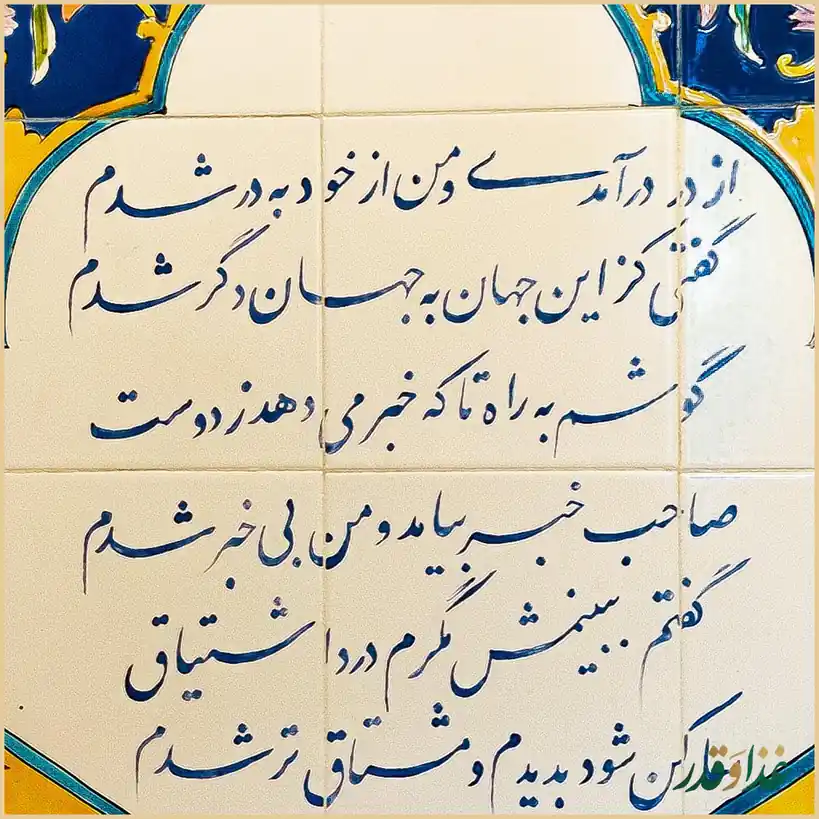 از در درآمدے و من از خود به در شدم
گفتی کز این جهان به جهان دگر شدم
گوشم به راه تا که خبر می دهد ز دوست
صاحب خبر بیامد و من بی خبر شدم
گفتم ببینمش مگرم درد اشتیاق
ساکن شود بدیدم و مشتاق تر شدم
غذا و قدر